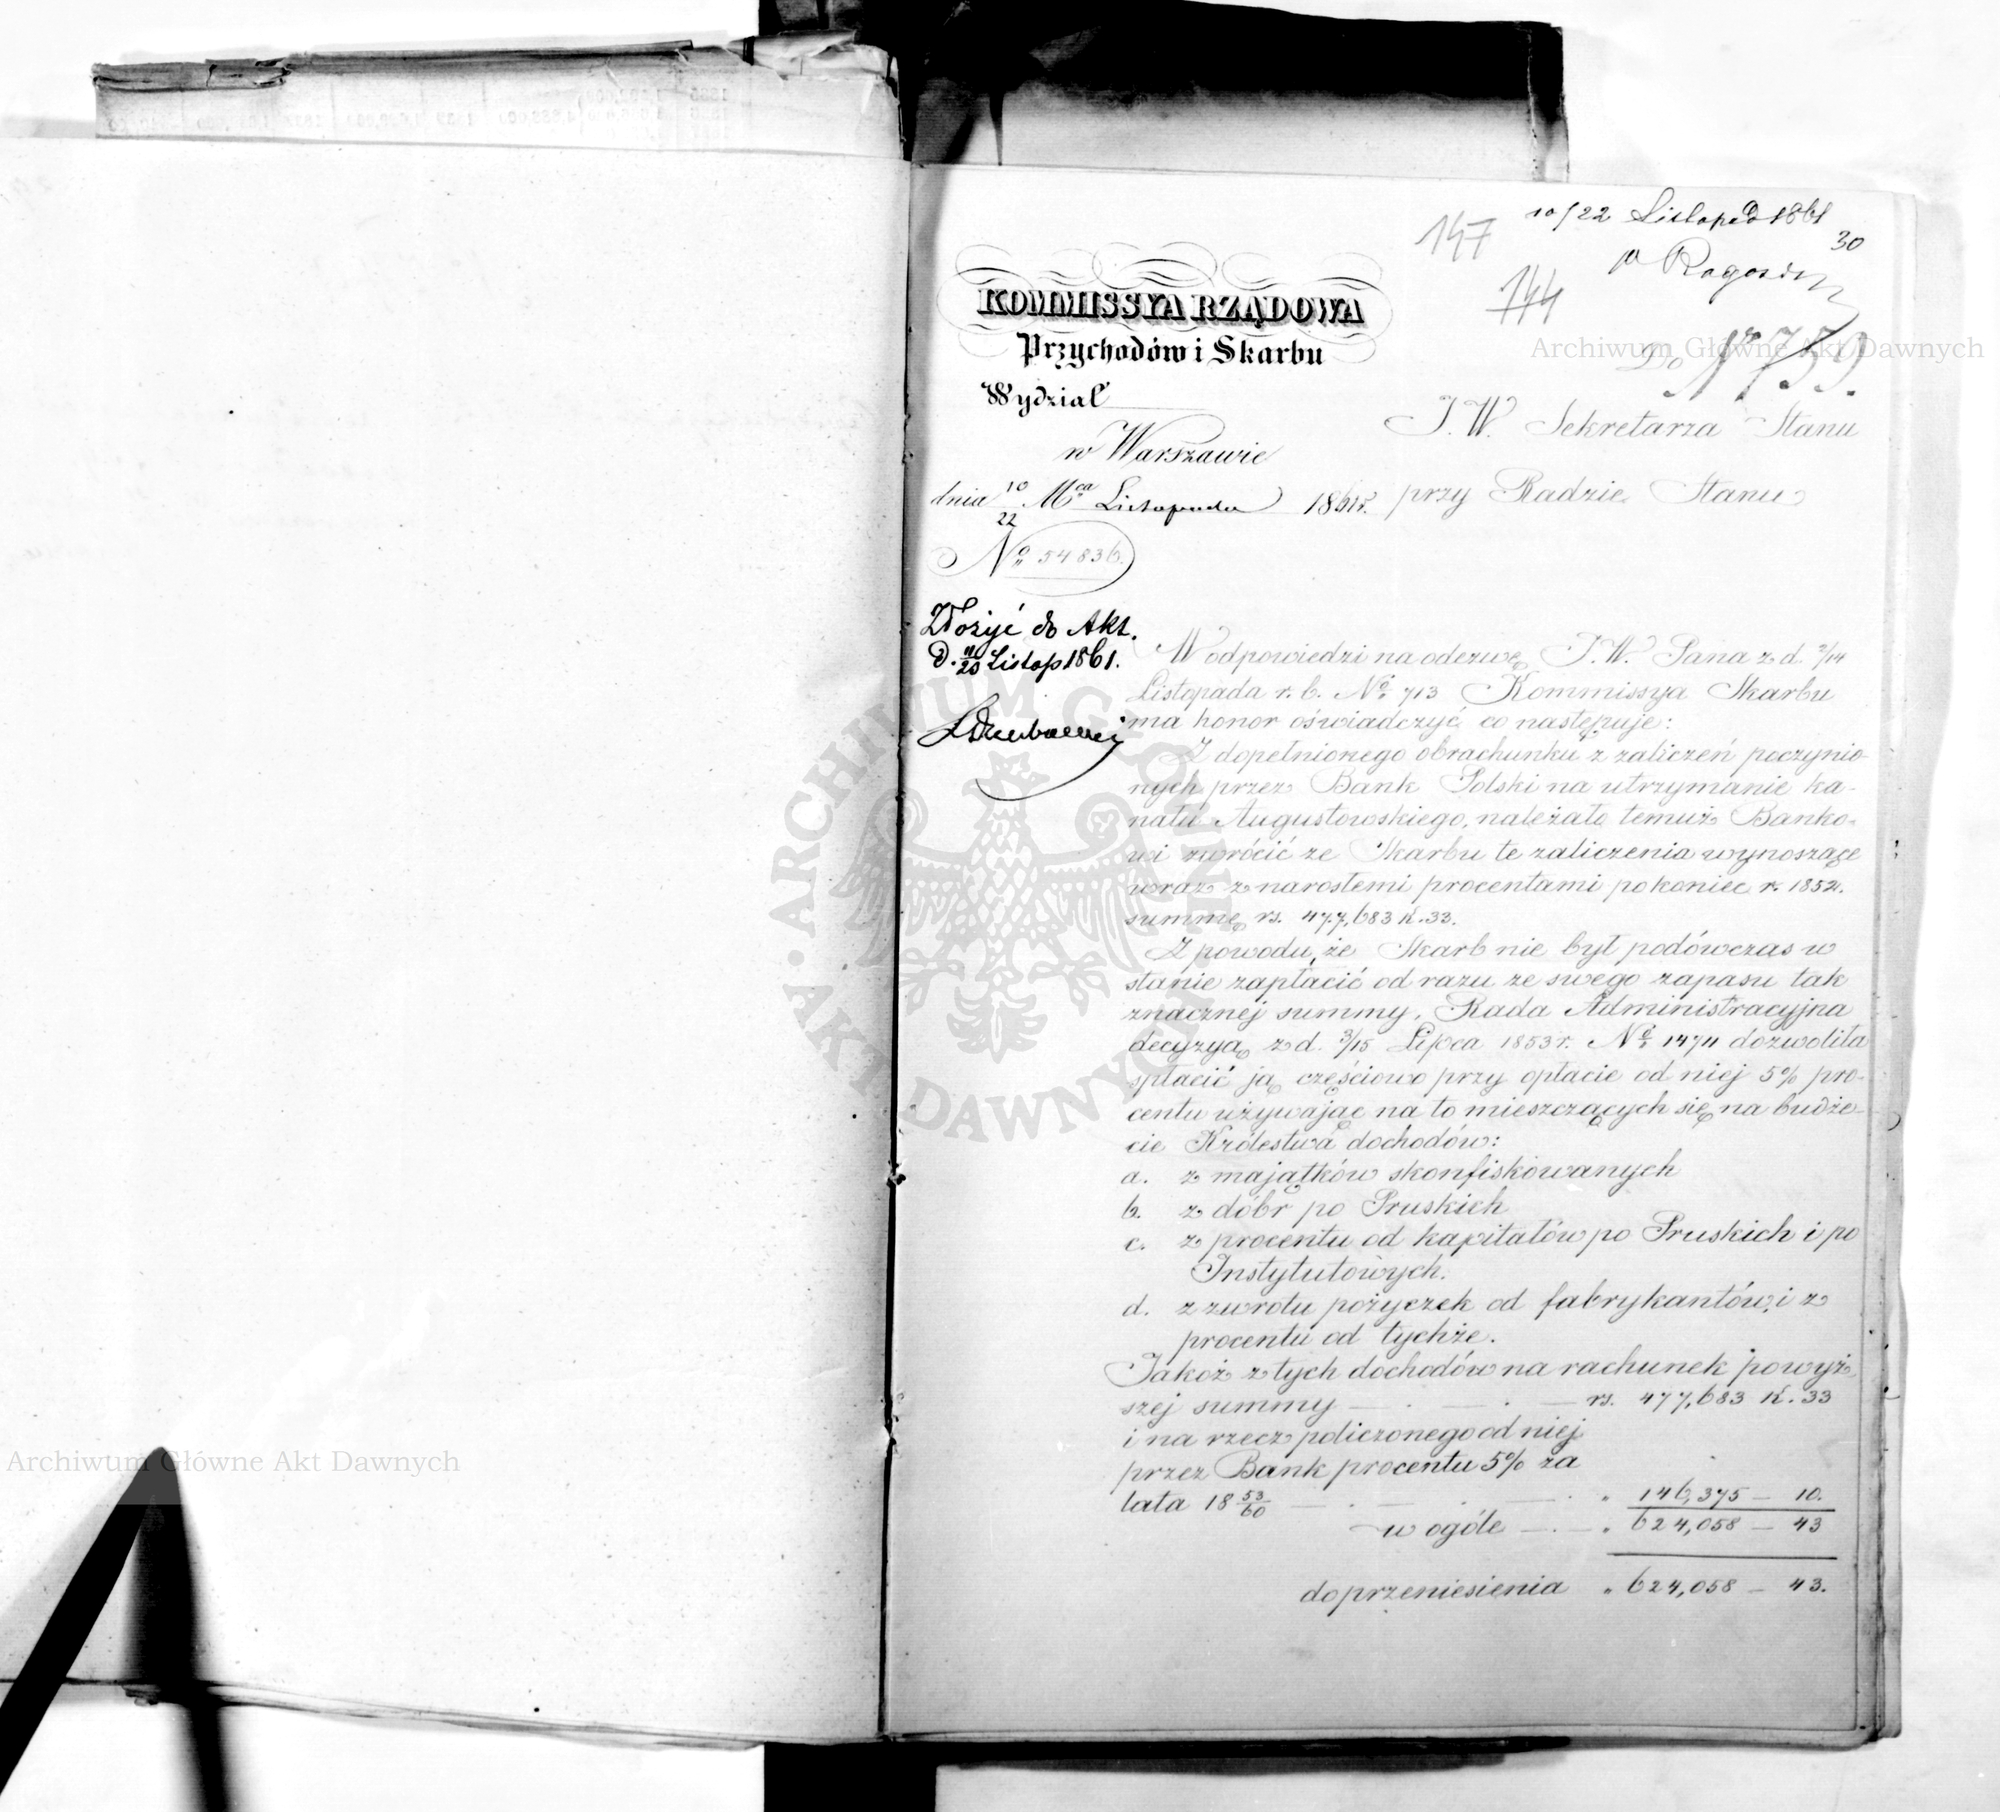 10/22 Listopad 1861
147
30
p Rogoz
144
KOMMISSYA RZĄDOWA
Przychodów i Skarbu
Do N 759.
Wydział
J. W. Sekretarza Stanu
w Warszawie
przy Radzie Stanu
dnia 10/22 Mca Listopada 1861r.
No 54836.
Złożyć do Akt.
d. 11/23 Listop 1861.
W odpowiedzi na odezwę J. W. Pana z d. 2/14
Listopada r. b. No 713 Kommissya Skarbu
ma honor oświadczyć co następuje:
Z dopełnionego obrachunku z zaliczeń poczynio-
nych przez Bank Polski na utrzymanie ka-
nału Augustowskiego, należało temuż Banko-
wi zwrócić ze Skarbu te zaliczenia wynoszące
wraz z narosłemi procentami po koniec r. 1852.
summę rs. 477,683 k. 33.
Z powodu, że Skarb nie był podówczas w
stanie zapłacić od razu ze swego zapasu tak
znacznej summy, Rada Administracyjna
decyzyą z d. 3/15 Lipca 1853 r. No 1474 dozwoliła
spłacić ją częściowo przy opłacie od niej 5% pro-
centu używając na to mieszczących się na budże-
cie Królestwa dochodów:
a. z majątków skonfiskowanych
b. z dóbr po Pruskich
c. z procentu od kapitałów po Pruskich i po
Instytutowych.
d. z zwrotu pożyczek od fabrykantów, i z
procentu od tychże.
Jakoż z tych dochodów na rachunek powyż
szej summy — . — . — rs. 477,683 k. 33
i na rzecz policzonego od niej
przez Bank procentu 5% za
lata 18 53/60 — . — . — . " 146,375 — 10.
w ogóle — . — " 624,058 — 43
do przeniesienia " 624,058 — 43.
Archiwum Główne Akt Dawnych
Archiwum Główne Akt Dawnych
ARCHIWUM GŁÓWNE · AKT DAWNYCH ·